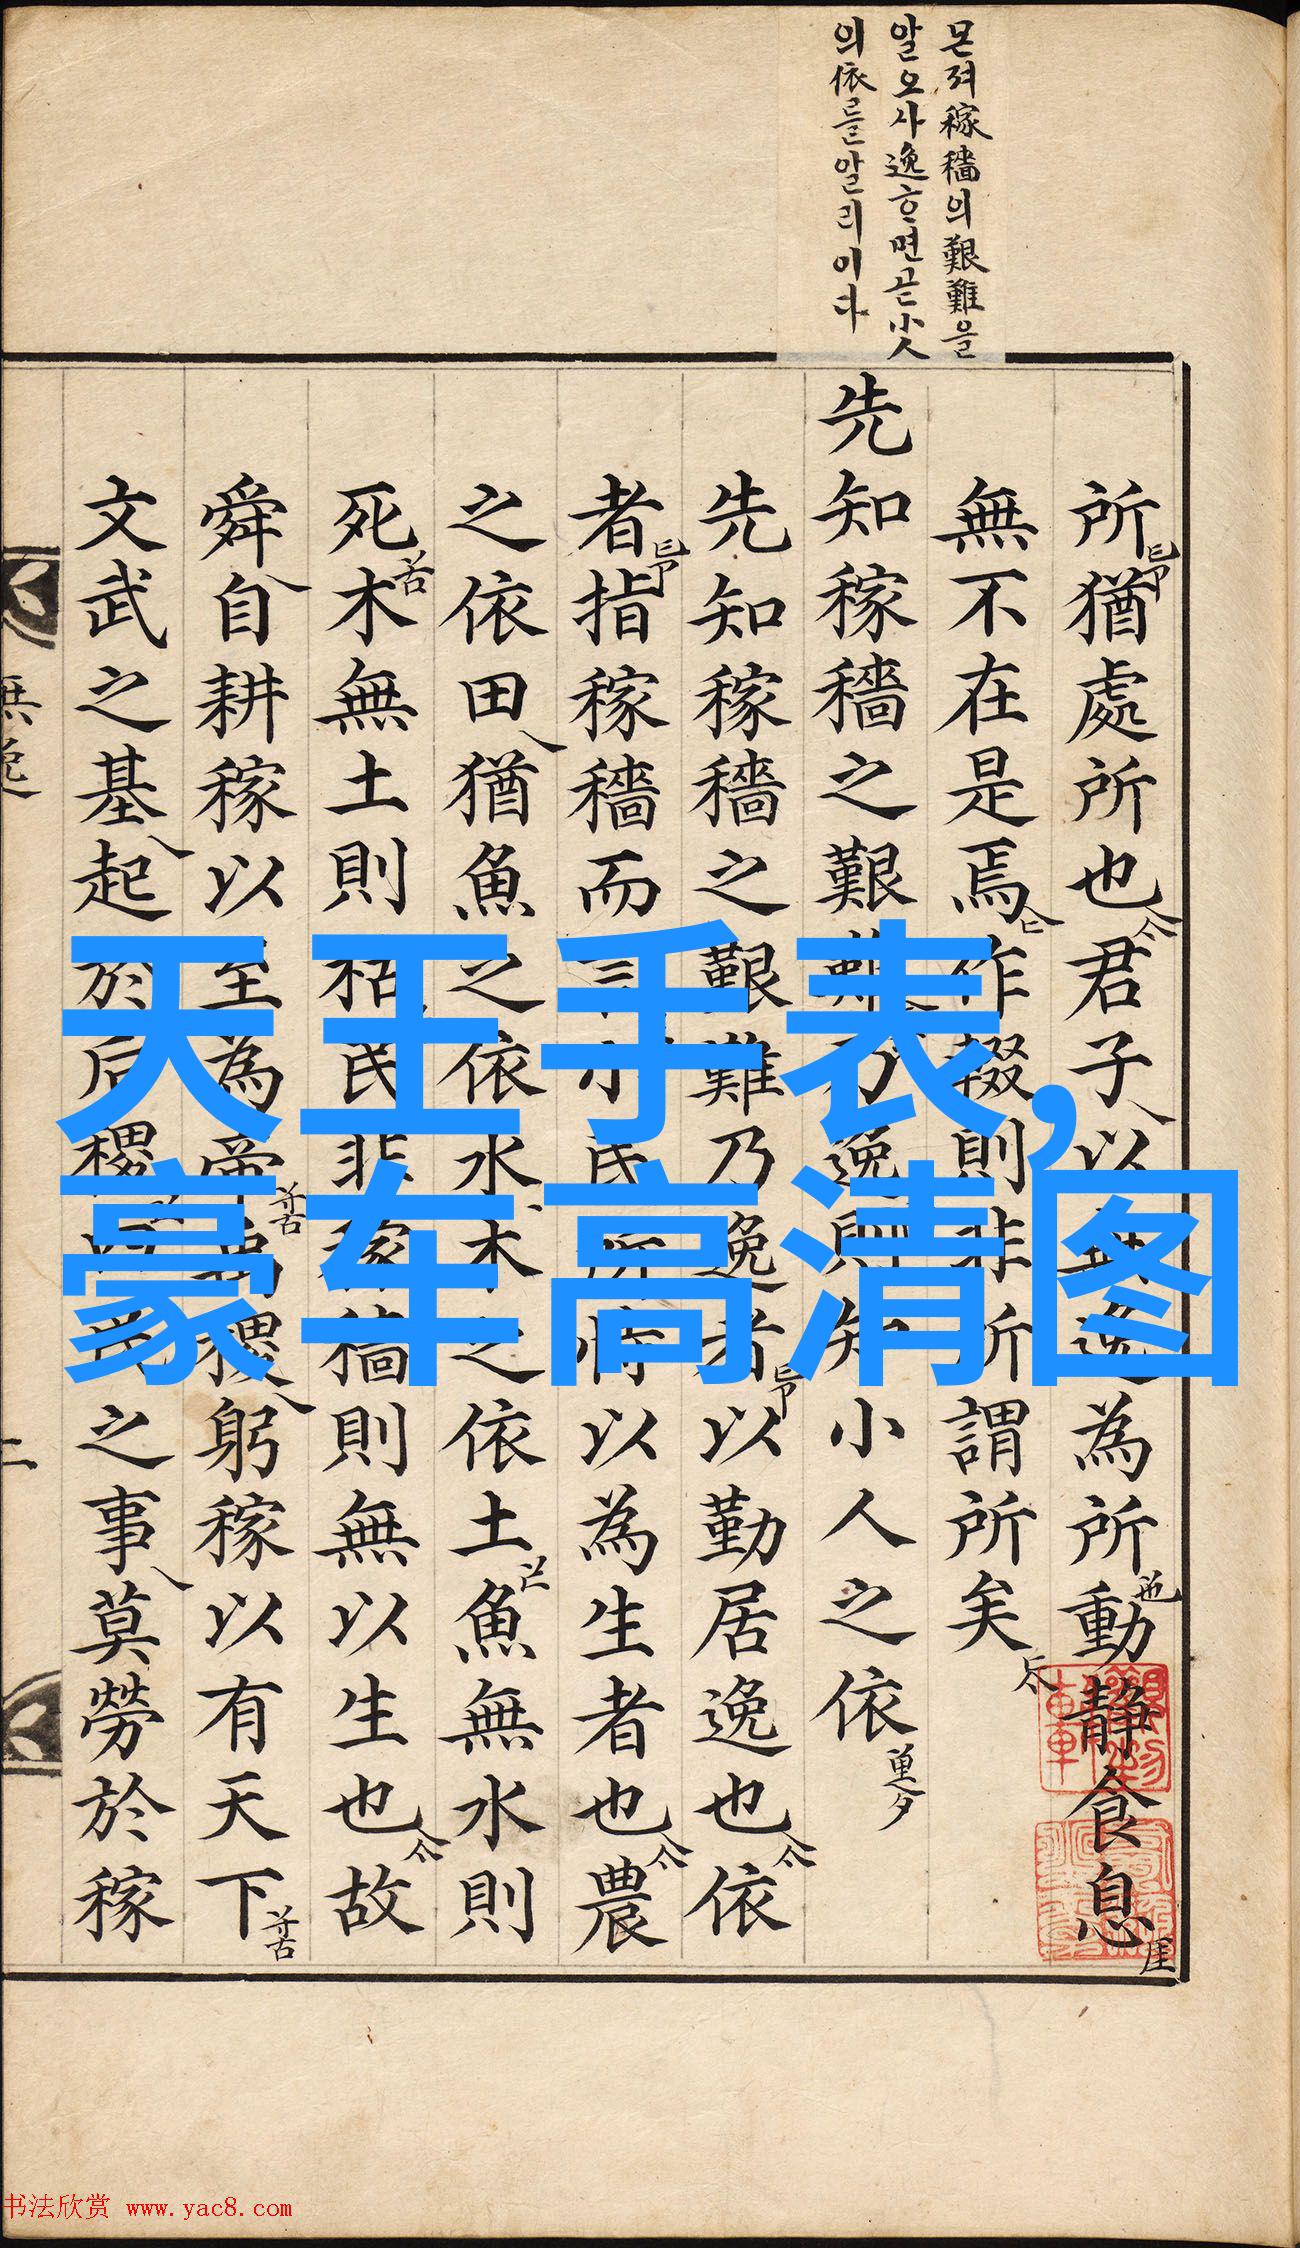 몬져稼穡의艱難을
알오사逸ᄒᆞ면곧小人
의依를알리이다
所猶處所也君子以無逸為所動靜食息
無不在是焉作輟則非所謂所矣
先知稼穡之艱難乃逸則知小人之依
先知稼穡之艱難乃逸者以勤居逸也依
者指稼穡而言小民所恃以為生者也農
之依田猶魚之依水木之依土魚無水則
死木無土則枯民非稼穡則無以生也故
舜自耕稼以至為帝禹稷躬稼以有天下
文武之基起於后稷四民之事莫勞於稼
無逸
二
天王手表,
豪车高清图
书法欣赏 www.yac8.com